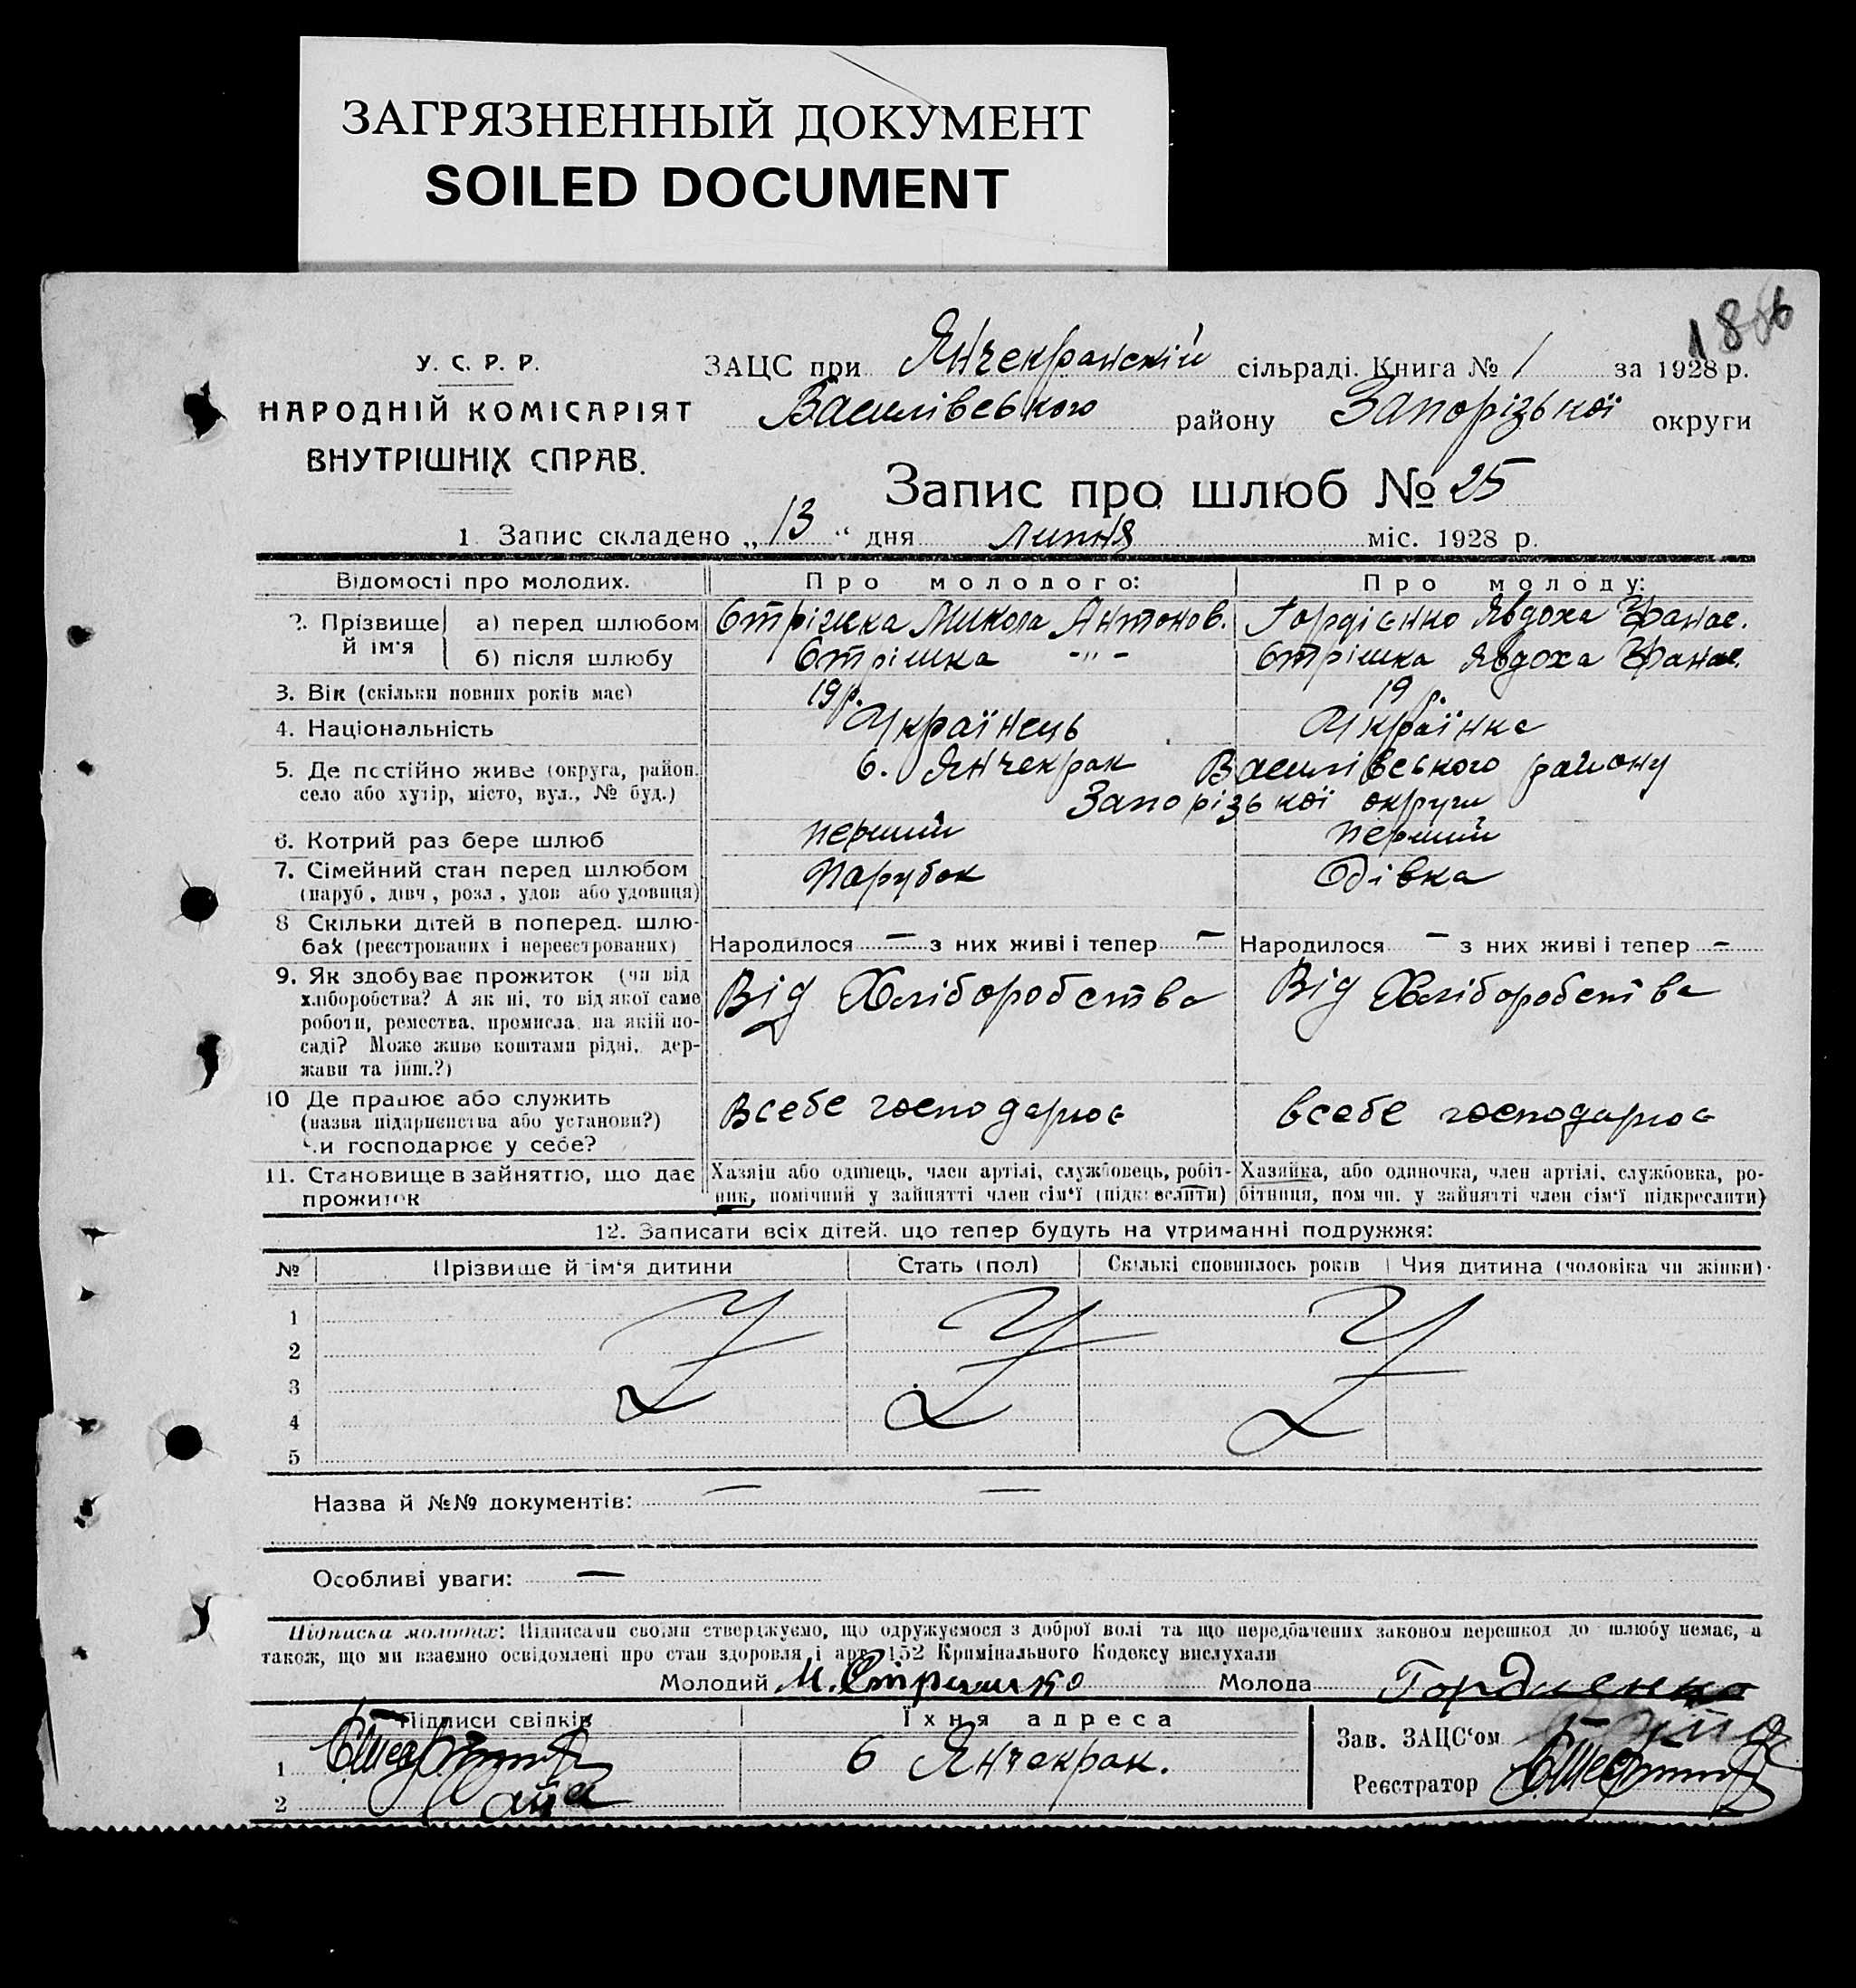 ЗАГРЯЗНЕННЫЙ ДОКУМЕНТ
SOILED DOCUMENT
У. С. Р. Р.
НАРОДНІЙ КОМІСАРІЯТ
ВНУТРІШНІХ СПРАВ.
ЗАЦС при Янчекранскій сільраді. Книга № 1 за 1928 р.
Василівського району Запорізької округи
Запис про шлюб № 25
1. Запис складено „13“ дня липня міс. 1928 р.
Відомості про молодих. Про молодого: Про молоду:
2. Прізвище й ім'я
а) перед шлюбом Стрішка Микола Антонов. Гордієнко Явдоха Панас.
б) після шлюбу Стрішка -"- Стрішка Явдоха Панас.
3. Вік (скільки повних років має) 19 р. 19 р.
4. Національність Українець Українка
5. Де постійно живе (округа, район, С. Янчекрак Василівського району
село або хутір, місто, вул., № буд.) Запорізької округи
6. Котрий раз бере шлюб перший перший
7. Сімейний стан перед шлюбом Парубок Дівка
(паруб., дівч., розл., удов. або удовиця)
8 Скільки дітей в поперед. шлю-
бах (реєстрованих і нереєстрованих) Народилося — з них живі і тепер — Народилося — з них живі і тепер —
9. Як здобуває прожиток (чи від Від Хліборобства Від Хліборобства
хліборобства? А як ні, то від якої саме
роботи, ремества, промисла, на якій по-
саді? Може живе коштами рідні, дер-
жави та інш.?)
10 Де працює або служить Всебе господарює всебе господарює
(назва підприємства або установи?)
Чи господарює у себе?
11. Становище в зайнятю, що дає Хазяїн або одинець, член артілі, службовець, робіт- Хазяйка, або одиночка, член артілі, службовка, ро-
прожиток ник, помічний у зайнятті член сім'ї (підкреслити) бітниця, пом чн. у зайнятті член сім'ї підкреслити)
12. Записати всіх дітей, що тепер будуть на утриманні подружжя:
№ Прізвище й ім'я дитини Стать (пол) Скількі сповнилось років Чия дитина (чоловіка чи жінки)
1
2
3
4
5
Назва й №№ документів: — —
Особливі уваги: —
Підписка молодих: Підписами своїми стверджуємо, що одружуємося з доброї волі та що передбачених законом перешкод до шлюбу немає, а
також, що ми взаємно освідомлені про стан здоровля і арт. 152 Кримінального Кодексу вислухали
Молодий М. Стришко Молода Гордиенко
Підписи свідків Їхня адреса
Зав. ЗАЦС'ом
1 С Янчекрак.
Реєстратор
2